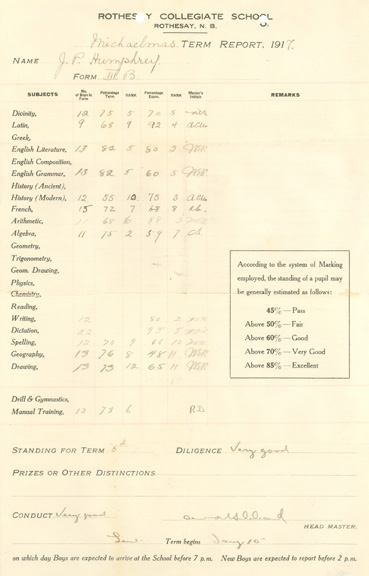 ROTHESAY COLLEGIATE SCHOOL
ROTHESAY, N. B.
Michaelmas TERM REPORT, 1917.
NAME J. P. Humphrey.
FORM III B
SUBJECTS No. of Boys in Form Percentage Term RANK Percentage Exam. RANK Master's Initials REMARKS
Divinity, 12 75 5 70 5
Latin, 9 68 9 92 4
Greek,
English Literature, 13 82 5 80 3
English Composition,
English Grammar, 13 82 5 60 5
History (Ancient),
History (Modern), 12 55 10 75 3
French, 15 72 7 68 8
Arithmetic, 11 68 6
Algebra, 11 75 2 59 7
Geometry,
Trigonometry,
Geom. Drawing,
Physics,
Chemistry,
Reading,
Writing, 12 80 2
Dictation, 22 95 5
Spelling, 12 70 9 66 10
Geography, 13 76 8 48 11
Drawing, 13 73 12 65 11
Drill & Gymnastics,
Manual Training, 12 78 6 R.D.
According to the system of Marking
employed, the standing of a pupil may
be generally estimated as follows:
45% — Pass
Above 50% — Fair
Above 60% — Good
Above 70% — Very Good
Above 85% — Excellent
STANDING FOR TERM DILIGENCE Very good
PRIZES OR OTHER DISTINCTIONS
CONDUCT Very good
HEAD MASTER.
Term begins Jany 10
on which day Boys are expected to arrive at the School before 7 p.m. New Boys are expected to report before 2 p.m.